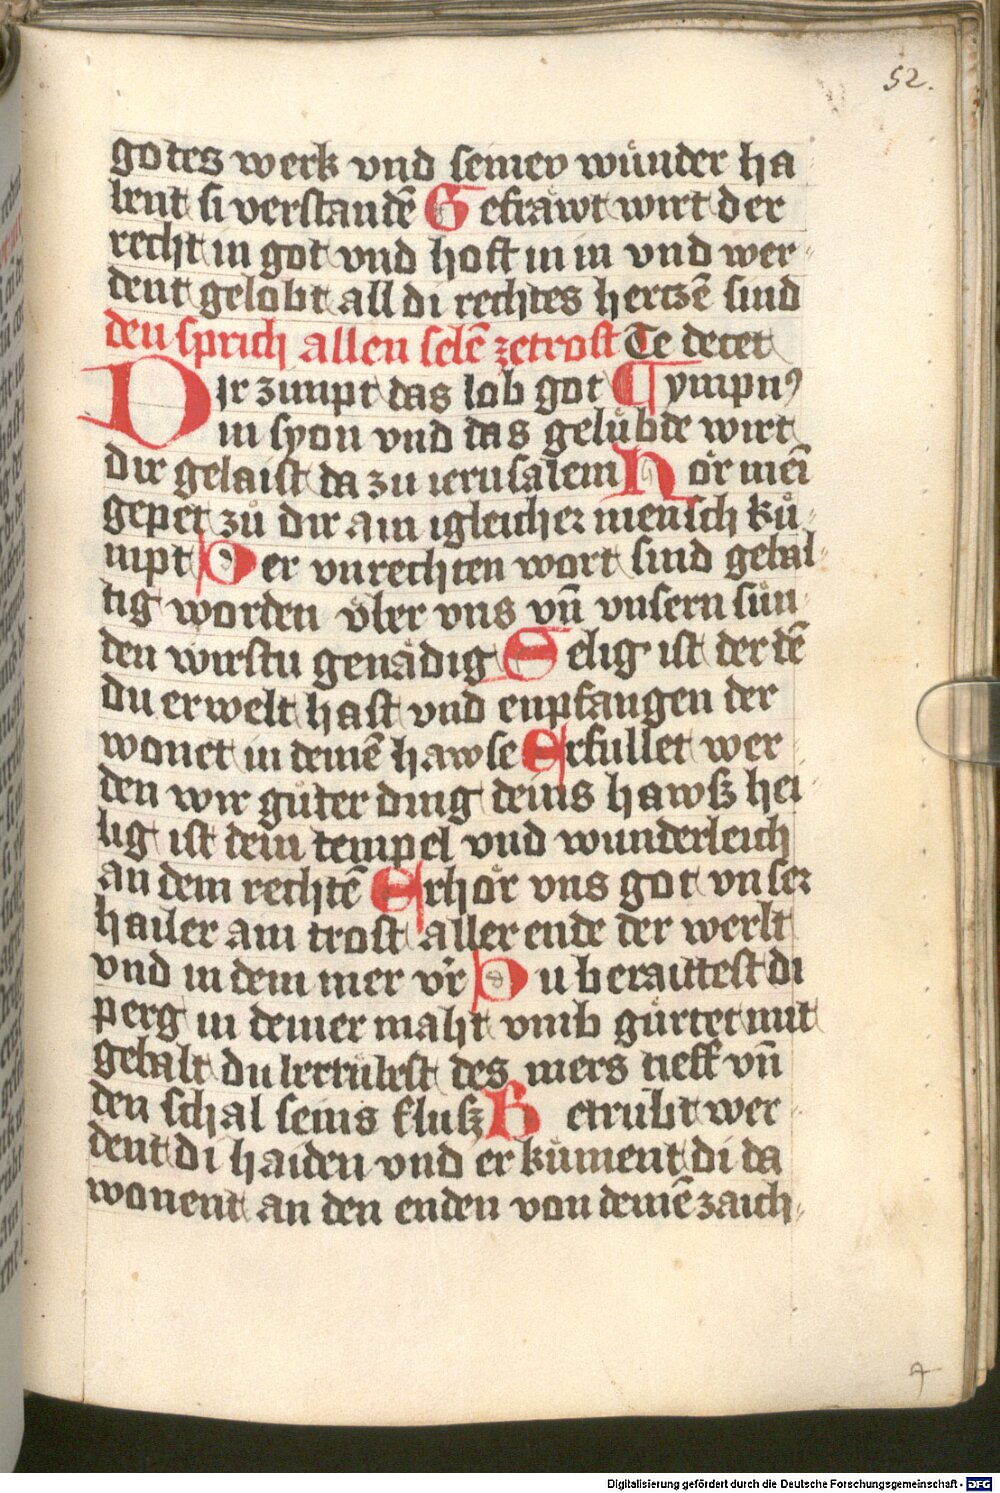 52.
gotes werk vnd seinev wuͤnder ha
bent si verstandē Gefraͤwt wirt der
recht in got vnd hoft in in vnd wer-
dent gelobt all di rechtes hertzē sind
den sprich allen selē zetrost Te decet
Dir zimpt das lob got ympnꝰ
in syon vnd das geluͤbde wirt
dir gelaist da zu ierusalem Hoͤr meī
gepet zuͦ dir ain igleicher mensch kuͤ-
mpt Der vnrechten wort sind gebal-
tig worden vͤber vns vn̄ vnsern suͤn-
den wirstu genaͤdig Selig ist der dē
du erwelt hast vnd enpfangen der
wonet in deinē hawse Erfullet wer-
den wir guͤter ding deins hawsz hei-
lig ist dein tempel vnd wunderleich
an dem rechtē Erhoͤr vns got vnser
hailer ain trost aller ende der werlt
vnd in dem mer v'r Du beraittest di
perg in deiner maht vmb guͤrtet mit
gebalt du betruͤbest des mers tieff vn̄
den schal seins flusz Betrubt wer-
dent di haiden vnd er kuͤment di da
wonent an den enden von deinē zaich-
Digitalisierung gefördert durch die Deutsche Forschungsgemeinschaft - DFG